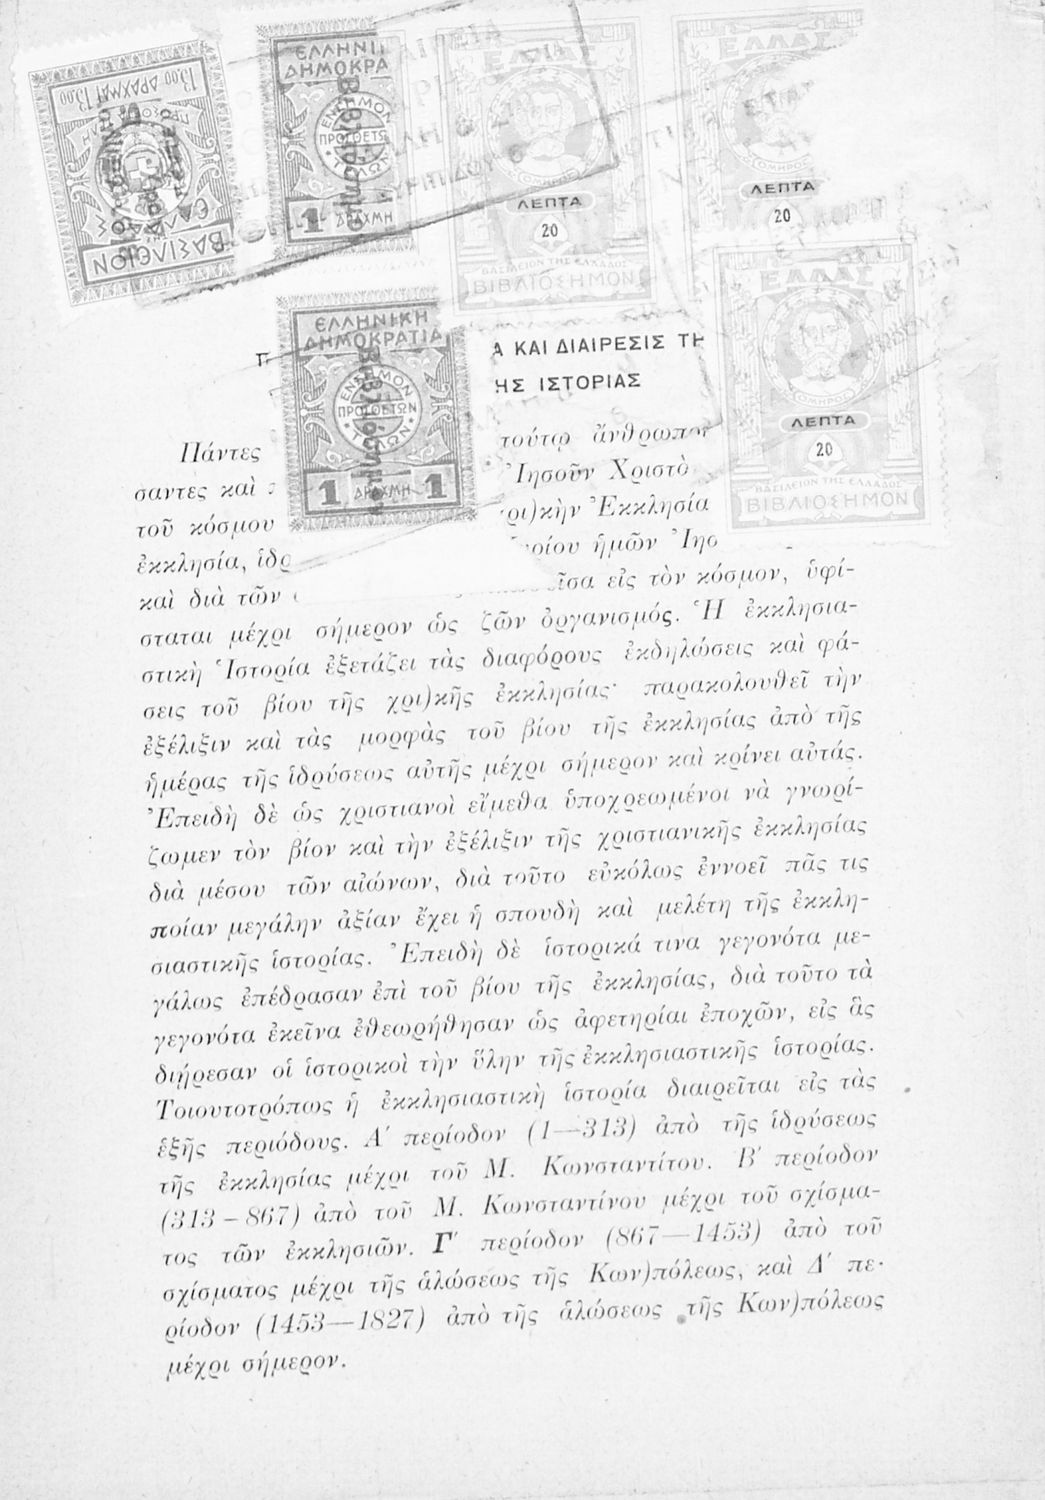 13.00 ΔΡΑΧΜΑΙ 13.00
ΒΑΣΙΛΕΙΟΝ
ΕΛΛΑΔΟΣ
ΔΗΜΟΚΡΑ
ΕΝΣΗΜΟΝ
1 ΔΡΑΧΜΗ
ΛΕΠΤΑ
20
ΒΑΣΙΛΕΙΟΝ ΤΗΣ ΕΛΛΑΔΟΣ
ΒΙΒΛΙΟΣΗΜΟΝ
ΕΛΛΑΣ
ΟΜΗΡΟΣ
ΛΕΠΤΑ
20
ΕΛΛΗΝΙΚΗ
ΔΗΜΟΚΡΑΤΙΑ
ΕΝΣΗΜΟΝ
ΠΡΟΣΘΕΤΩΝ
Βιβλιόσημον
1 ΔΡΑΧΜΗ 1
ΕΛΛΑΣ
ΟΜΗΡΟΣ
ΛΕΠΤΑ
20
ΒΑΣΙΛΕΙΟΝ ΤΗΣ ΕΛΛΑΔΟΣ
ΒΙΒΛΙΟΣΗΜΟΝ
Α ΚΑΙ ΔΙΑΙΡΕΣΙΣ ΤΗ
ΗΣ ΙΣΤΟΡΙΑΣ
Πάντες τούτῳ ἄνθρωποι
σαντες καὶ Ἰησοῦν Χριστὸ
τοῦ κόσμου ρι)κὴν Ἐκκλησία
ἐκκλησία, ἱδρ ρίου ἡμῶν Ἰησ
καὶ διὰ τῶν εἰς τὸν κόσμον, ὑφί-
σταται μέχρι σήμερον ὡς ζῶν ὀργανισμός. Ἡ ἐκκλησια-
στικὴ Ἱστορία ἐξετάζει τὰς διαφόρους ἐκδηλώσεις καὶ φά-
σεις τοῦ βίου τῆς χρι)κῆς ἐκκλησίας· παρακολουθεῖ τὴν
ἐξέλιξιν καὶ τὰς μορφὰς τοῦ βίου τῆς ἐκκλησίας ἀπὸ τῆς
ἡμέρας τῆς ἱδρύσεως αὐτῆς μέχρι σήμερον καὶ κρίνει αὐτάς.
Ἐπειδὴ δὲ ὡς χριστιανοὶ εἴμεθα ὑποχρεωμένοι νὰ γνωρί-
ζωμεν τὸν βίον καὶ τὴν ἐξέλιξιν τῆς χριστιανικῆς ἐκκλησίας
διὰ μέσου τῶν αἰώνων, διὰ τοῦτο εὐκόλως ἐννοεῖ πᾶς τις
ποίαν μεγάλην ἀξίαν ἔχει ἡ σπουδὴ καὶ μελέτη τῆς ἐκκλη-
σιαστικῆς ἱστορίας. Ἐπειδὴ δὲ ἱστορικά τινα γεγονότα με-
γάλως ἐπέδρασαν ἐπὶ τοῦ βίου τῆς ἐκκλησίας, διὰ τοῦτο τὰ
γεγονότα ἐκεῖνα ἐθεωρήθησαν ὡς ἀφετηρίαι ἐποχῶν, εἰς ἃς
διῄρεσαν οἱ ἱστορικοὶ τὴν ὕλην τῆς ἐκκλησιαστικῆς ἱστορίας.
Τοιουτοτρόπως ἡ ἐκκλησιαστικὴ ἱστορία διαιρεῖται εἰς τὰς
ἑξῆς περιόδους. Α΄ περίοδον (1—313) ἀπὸ τῆς ἱδρύσεως
τῆς ἐκκλησίας μέχρι τοῦ Μ. Κωνσταντίτου. Β΄ περίοδον
(313-867) ἀπὸ τοῦ Μ. Κωνσταντίνου μέχρι τοῦ σχίσμα-
τος τῶν ἐκκλησιῶν. Γ΄ περίοδον (867—1453) ἀπὸ τοῦ
σχίσματος μέχρι τῆς ἁλώσεως τῆς Κων)πόλεως, καὶ Δ΄ πε-
ρίοδον (1453—1827) ἀπὸ τῆς ἁλώσεως τῆς Κων)πόλεως
μέχρι σήμερον.